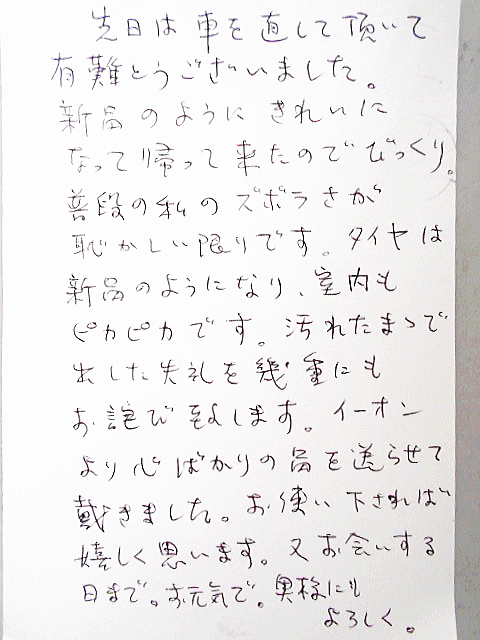 先日は車を直して頂いて
有難とうございました。
新品のようにきれいに
なって帰って来たのでびっくり。
普段の私のズボラさが
恥かしい限りです。タイヤは
新品のようになり、室内も
ピカピカです。汚れたまゝで
出した失礼を幾重にも
お詫び致します。イーオン
より心ばかりの品を送らせて
戴きました。お使い下されば
嬉しく思います。又お会いする
日まで。お元気で。奥様にも
よろしく。